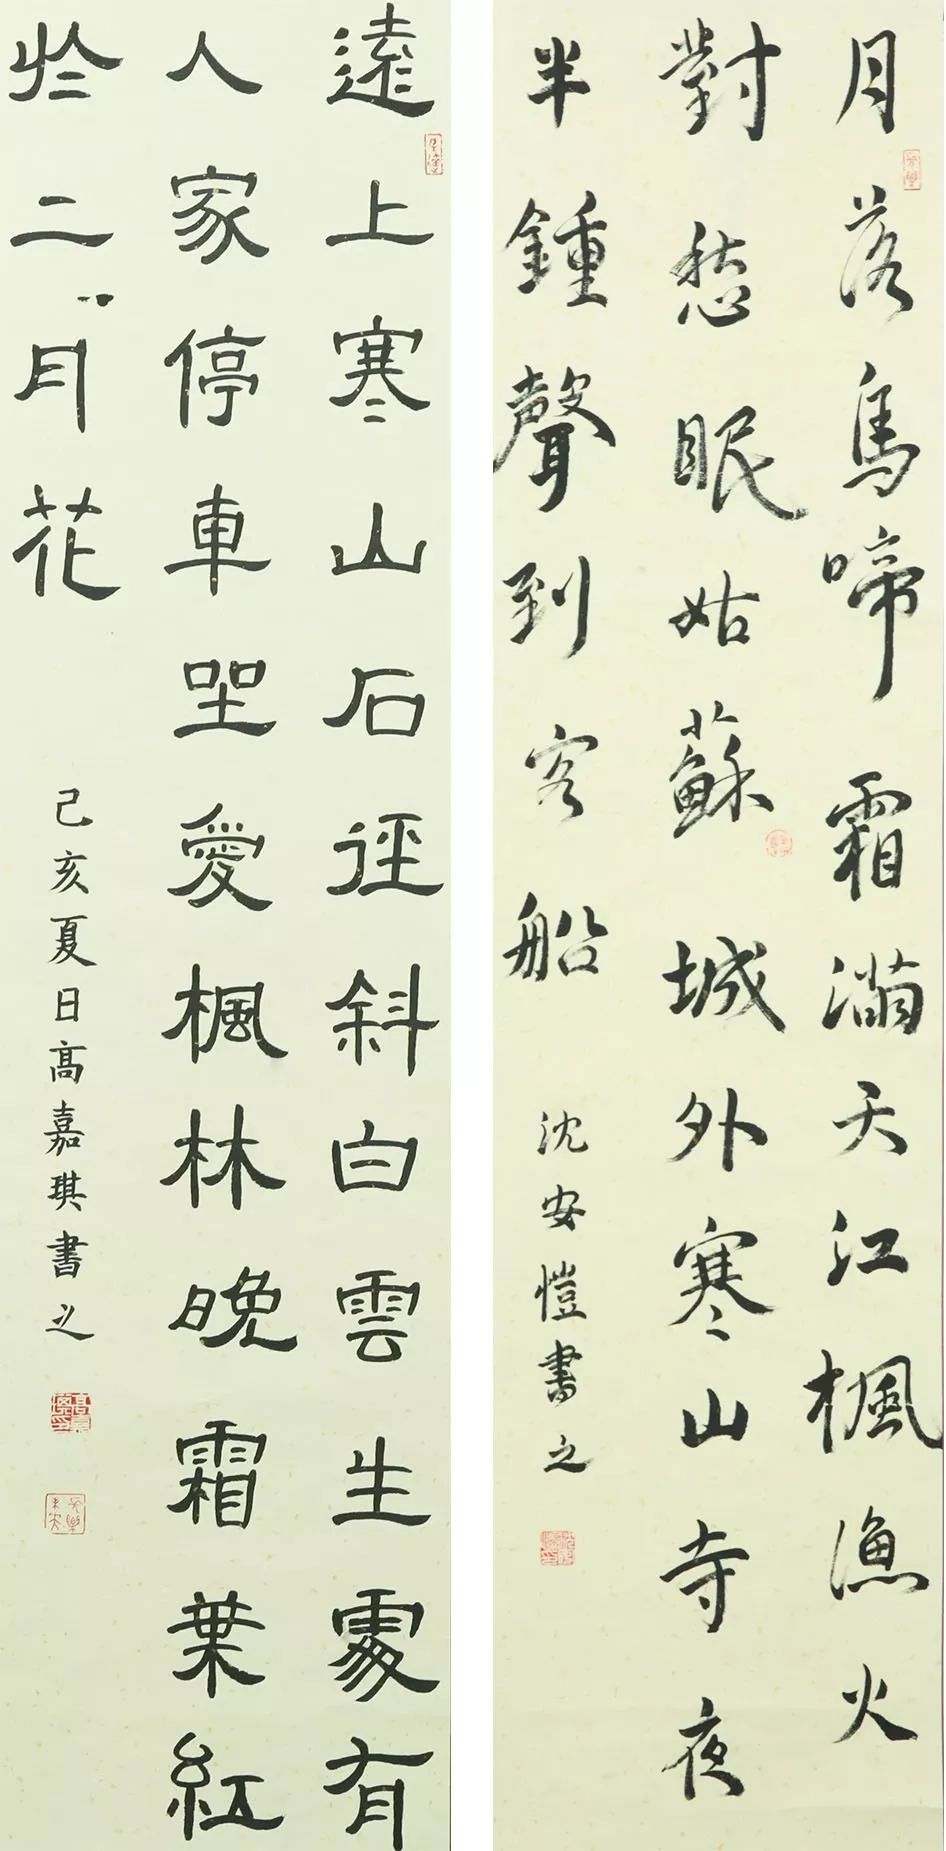 月落烏啼霜滿天江楓漁火
對愁眠姑蘇城外寒山寺夜
半鍾聲到客船
沈安愷書之
遠上寒山石徑斜白雲生處有
人家停車坐愛楓林晚霜葉紅
於二月花
己亥夏日高嘉琪書之